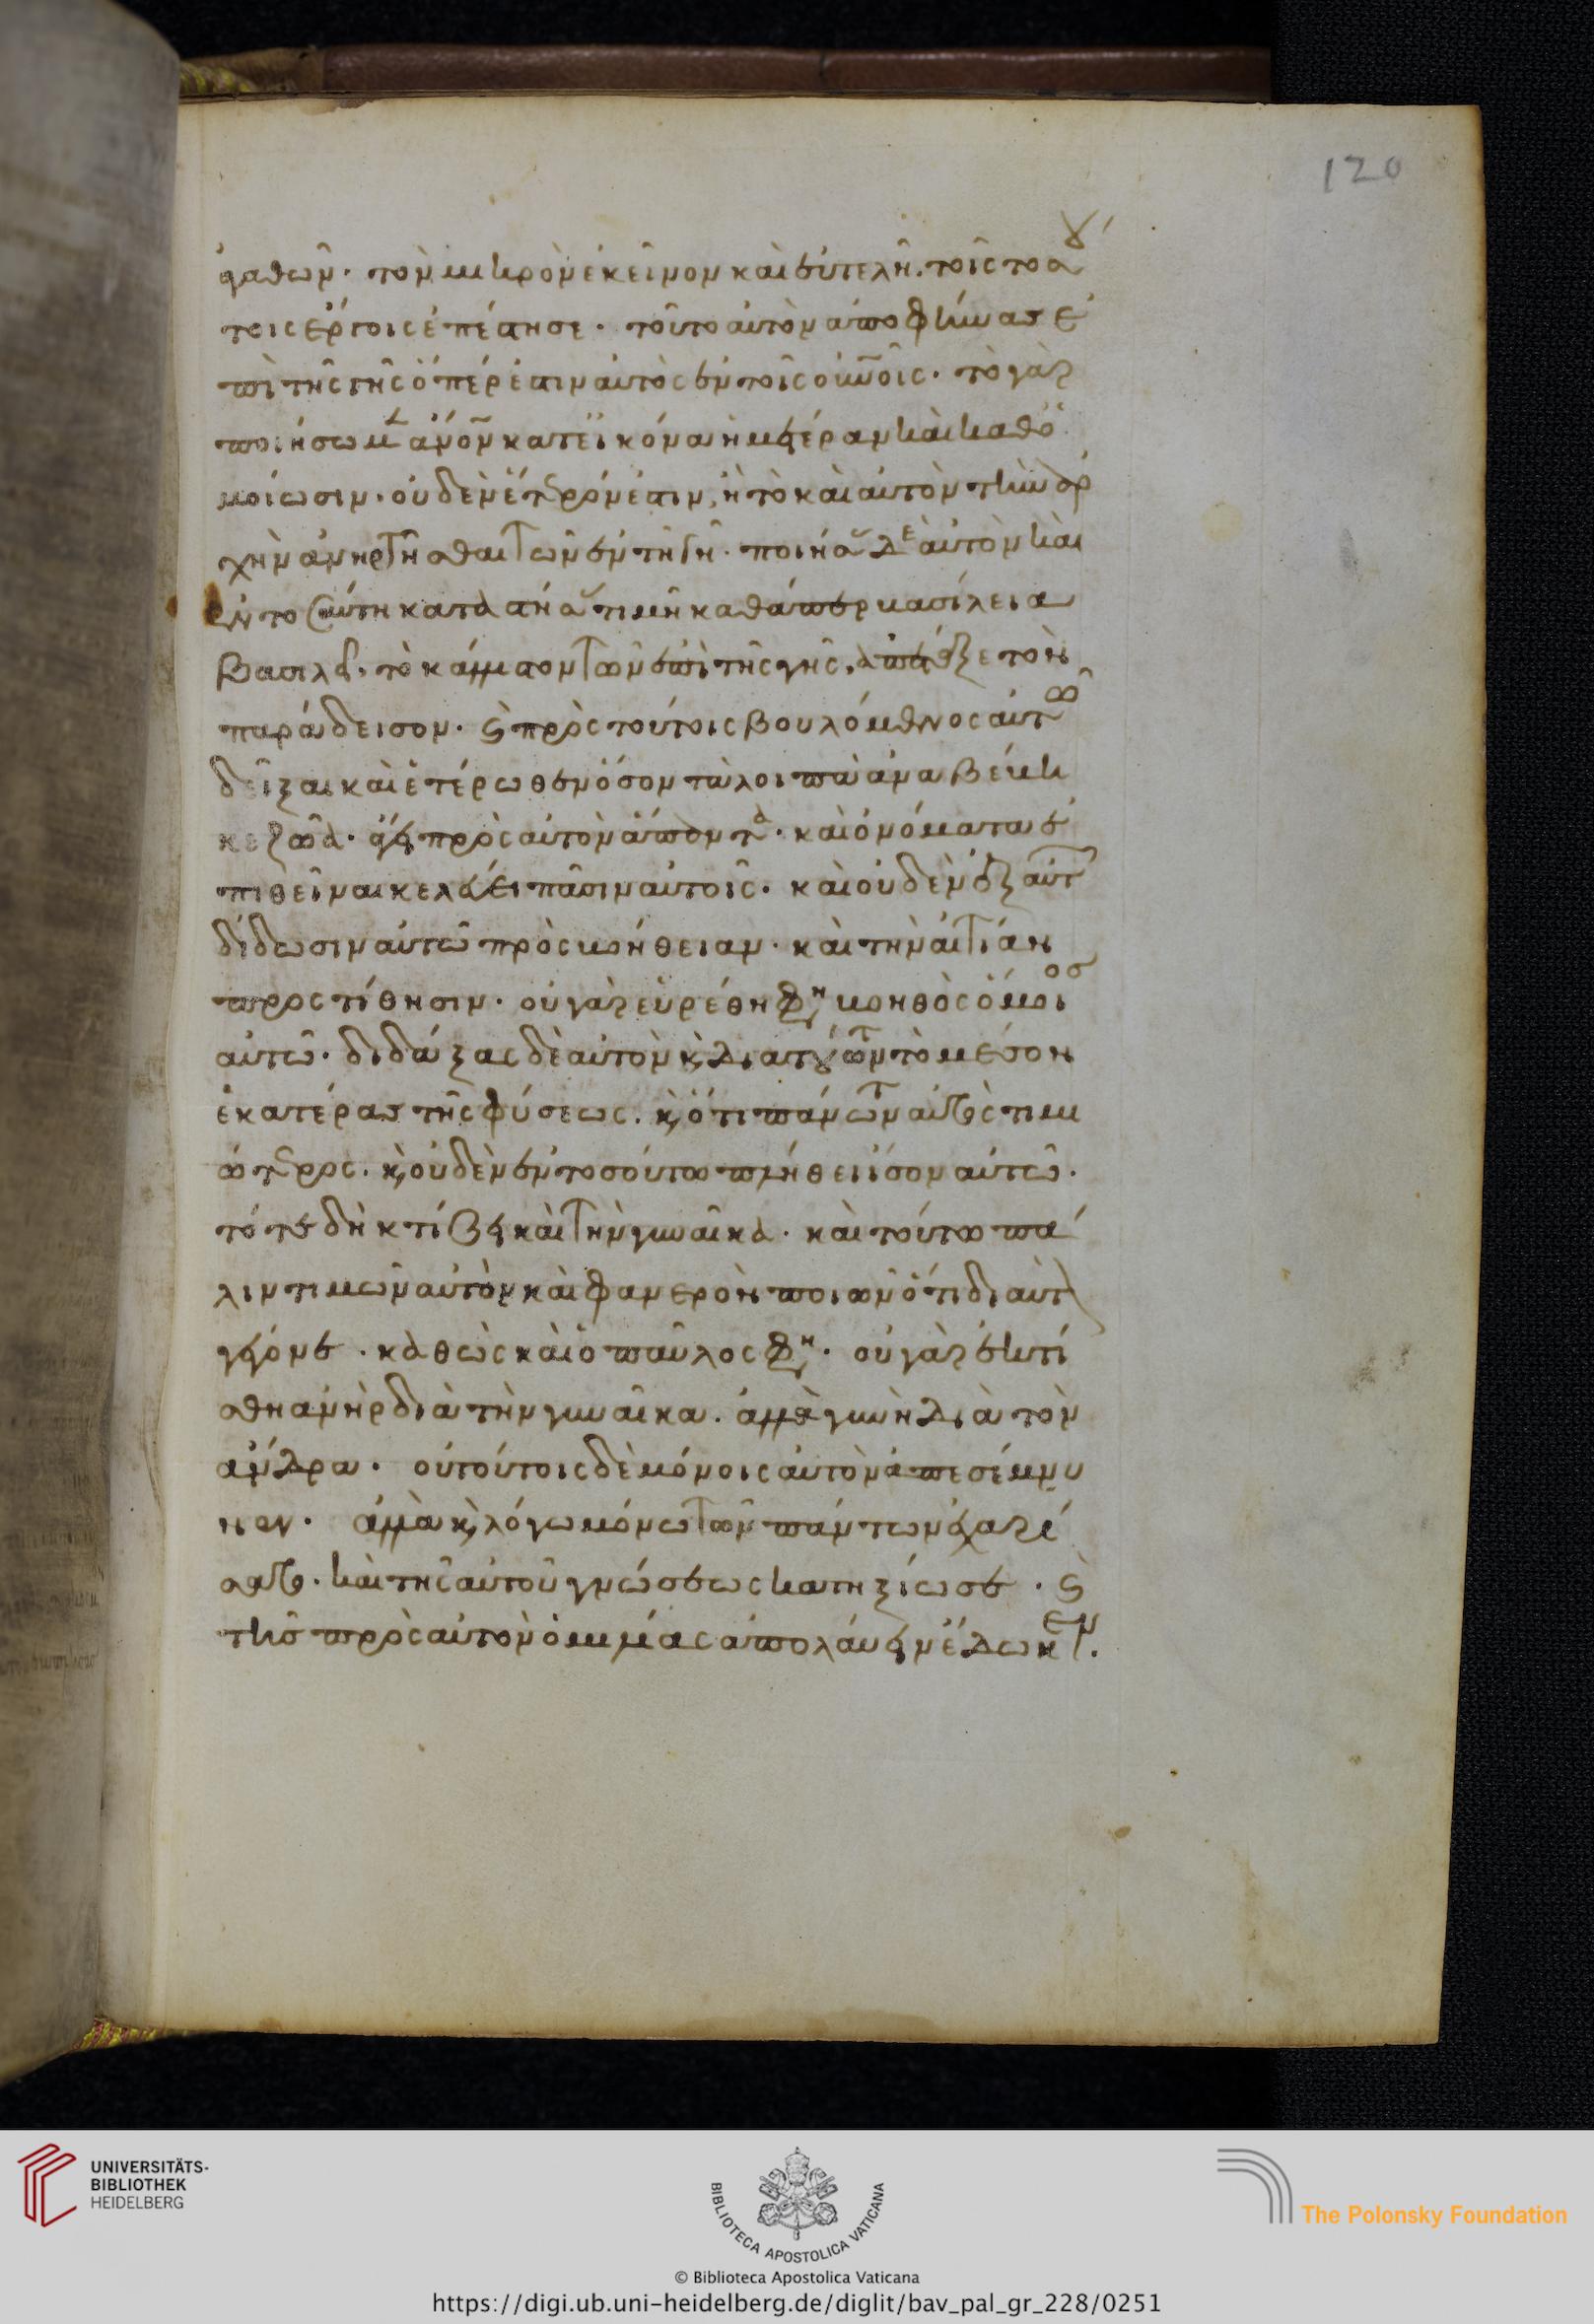 120
ἀγαθῶν· τὸν μικρὸν ἐκεῖνον καὶ εὐτελῆ. τοῖς τοσού
τοις ἔργοις ἐπέστησε· τοῦτο αὐτὸν ἀποφήνας ἐ
πὶ τῆς γῆς ὅπέρ ἐστιν αὐτὸς ἐν τοῖς οὐνοῖς· τὸ γὰρ
ποιήσωμ ἄνον κατ εἰκόνα ἡμετέραν καὶ καθ ὁ
μοίωσιν· οὐδὲν ἕτερόν ἐστιν, ἢ τὸ καὶ αὐτὸν τὴν ἀρ
χὴν ἀνηρτῆσθαι τῶν ἐν τῆ γῆ· ποιήσας δὲ αὐτὸν καὶ
ἐν τοσαύτη καταστήσας τιμῆ καθάπερ βασίλεια
βασιλεῖ. τὸ κάλλιστον τῶν ἐπὶ τῆς γῆς.
παράδεισον· καὶ πρὸς τούτοις βουλόμενος αὐτῶ
δεῖξαι καὶ ἑτέρωθεν ὅσον τὰ λοιπὰ ἀναβέβη
κε ζῶα· ἄγει πρὸς αὐτὸν ἅπαντα· καὶ ὀνόματα ἐ
πιθεῖναι κελεύει πᾶσιν αὐτοῖς· καὶ οὐδὲν ἐξ αὐτῶν
δίδωσιν αὐτῶ πρὸς βοήθειαν· καὶ τὴν αἰτίαν
προςτίθησιν· οὐ γὰρ εὑρέθη φησὶ βοηθὸς ὅμοιος
αὐτῶ· διδάξας δὲ αὐτὸν καὶ διὰ τούτων τὸ μέσον
ἑκατέρας τῆς φύσεως. καὶ ὅτι πάντων αὐτὸς τιμι
ώτερος. καὶ οὐδὲν ἐν τοσούτω πλήθει ἴσον αὐτῶ·
τότε δὴ κτίζει καὶ τὴν γυναῖκα· καὶ τούτω πά
λιν τιμῶν αὐτὸν καὶ φανερὸν ποιῶν ὅτι δι αὐτὸν
γέγονε· καθὼς καὶ ὁ παῦλος φησὶν· οὐ γὰρ ἐκτί
σθη ἀνὴρ διὰ τὴν γυναῖκα. ἀλλὰ γυνὴ διὰ τὸν
ἄνδρα· οὐ τούτοις δὲ μόνοις αὐτὸν ἀπεσέμνυ
νεν· ἀλλὰ καὶ λόγω μόνω τῶν πάντων ἐχαρί
σατο· καὶ τῆς αὐτοῦ γνώσεως κατηξίωσε· καὶ
τῆς πρὸς αὐτὸν ὁμιλίας ἀπολαύειν ἔδωκεν.
UNIVERSITÄTS-
BIBLIOTHEK
HEIDELBERG
BIBLIOTECA APOSTOLICA VATICANA
The Polonsky Foundation
© Biblioteca Apostolica Vaticana
https://digi.ub.uni-heidelberg.de/diglit/bav_pal_gr_228/0251